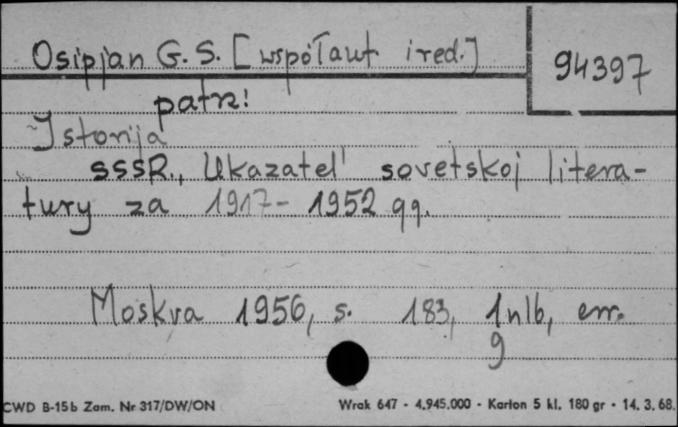 Osipjan G. S. [współaut i red.]
94397
patrz!
Istorija
SSSR., Ukazatel' sovetskoj litera-
tury za 1917- 1952 gg.
Moskva 1956, s. 183, 1nlb, err.
9
CWD B-15b Zam. Nr 317/DW/ON
Wrak 647 - 4.945.000 - Karton 5 kl. 180 gr - 14. 3. 68.